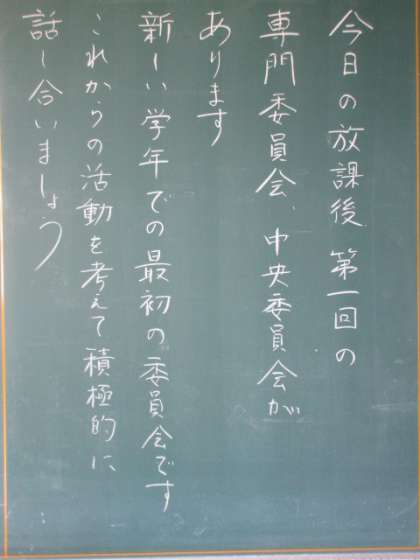 今日の放課後、第一回の
専門委員会、中央委員会が
あります
新しい学年での最初の委員会です
これからの活動を考えて積極的に
話し合いましょう